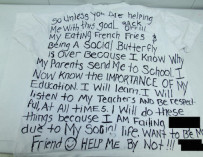 So unless you are helping
Me with this goal
My Eating French Fries
Being A Social Butterfly
is over Because I Know Why
My Parents send Me to School I
Now Know the Importance of My
Education. I Will learn. I will
listen to My Teachers and Be respect-
ful, At All TIMES. I Will do these
things because I AM FAiling
due to My Social life. WANT to Be My
Friend HELP ME By Not !!!